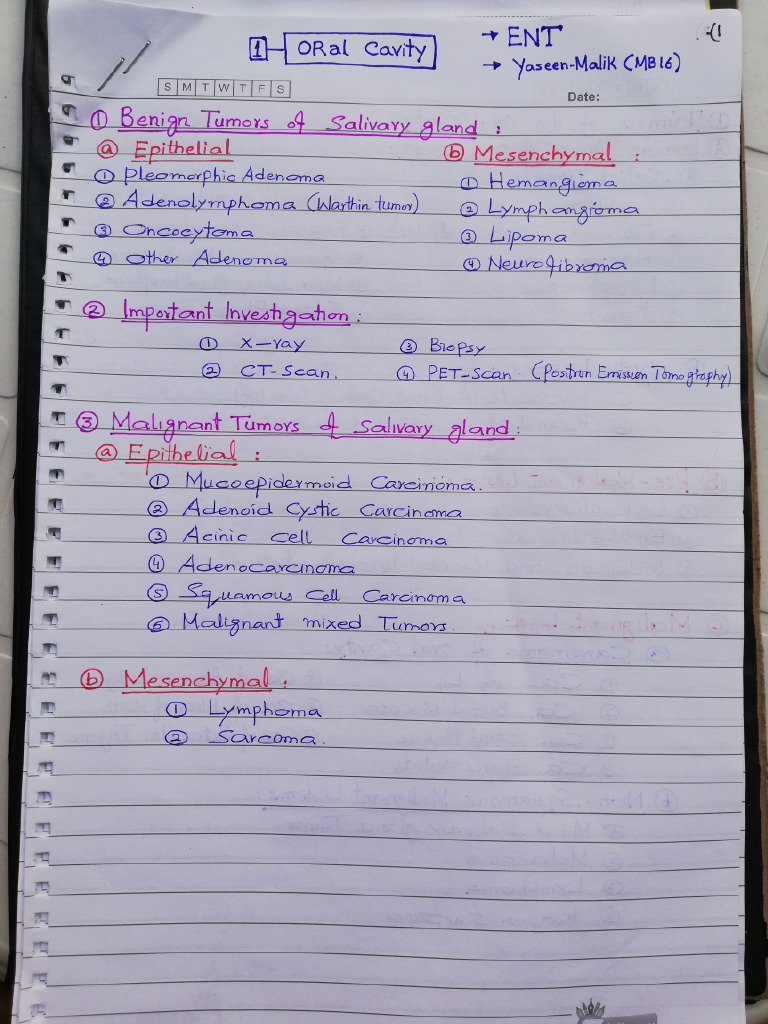 1 ORal Cavity
→ ENT
→ Yaseen-Malik (MB16)
S M T W T F S
Date:
① Benign Tumors of Salivary gland :
ⓐ Epithelial
① Pleomorphic Adenoma
② Adenolymphoma (Warthin tumor)
③ Oncocytoma
④ Other Adenoma
ⓑ Mesenchymal :
① Hemangioma
② Lymphangioma
③ Lipoma
④ Neurofibroma
② Important Investigation :
① X-ray
② CT-Scan.
③ Biopsy
④ PET-Scan (Positron Emission Tomography)
③ Malignant Tumors of Salivary gland :
ⓐ Epithelial :
① Mucoepidermoid Carcinoma.
② Adenoid Cystic Carcinoma
③ Acinic Cell Carcinoma
④ Adenocarcinoma
⑤ Squamous Cell Carcinoma
⑥ Malignant mixed Tumors.
ⓑ Mesenchymal :
① Lymphoma
② Sarcoma.